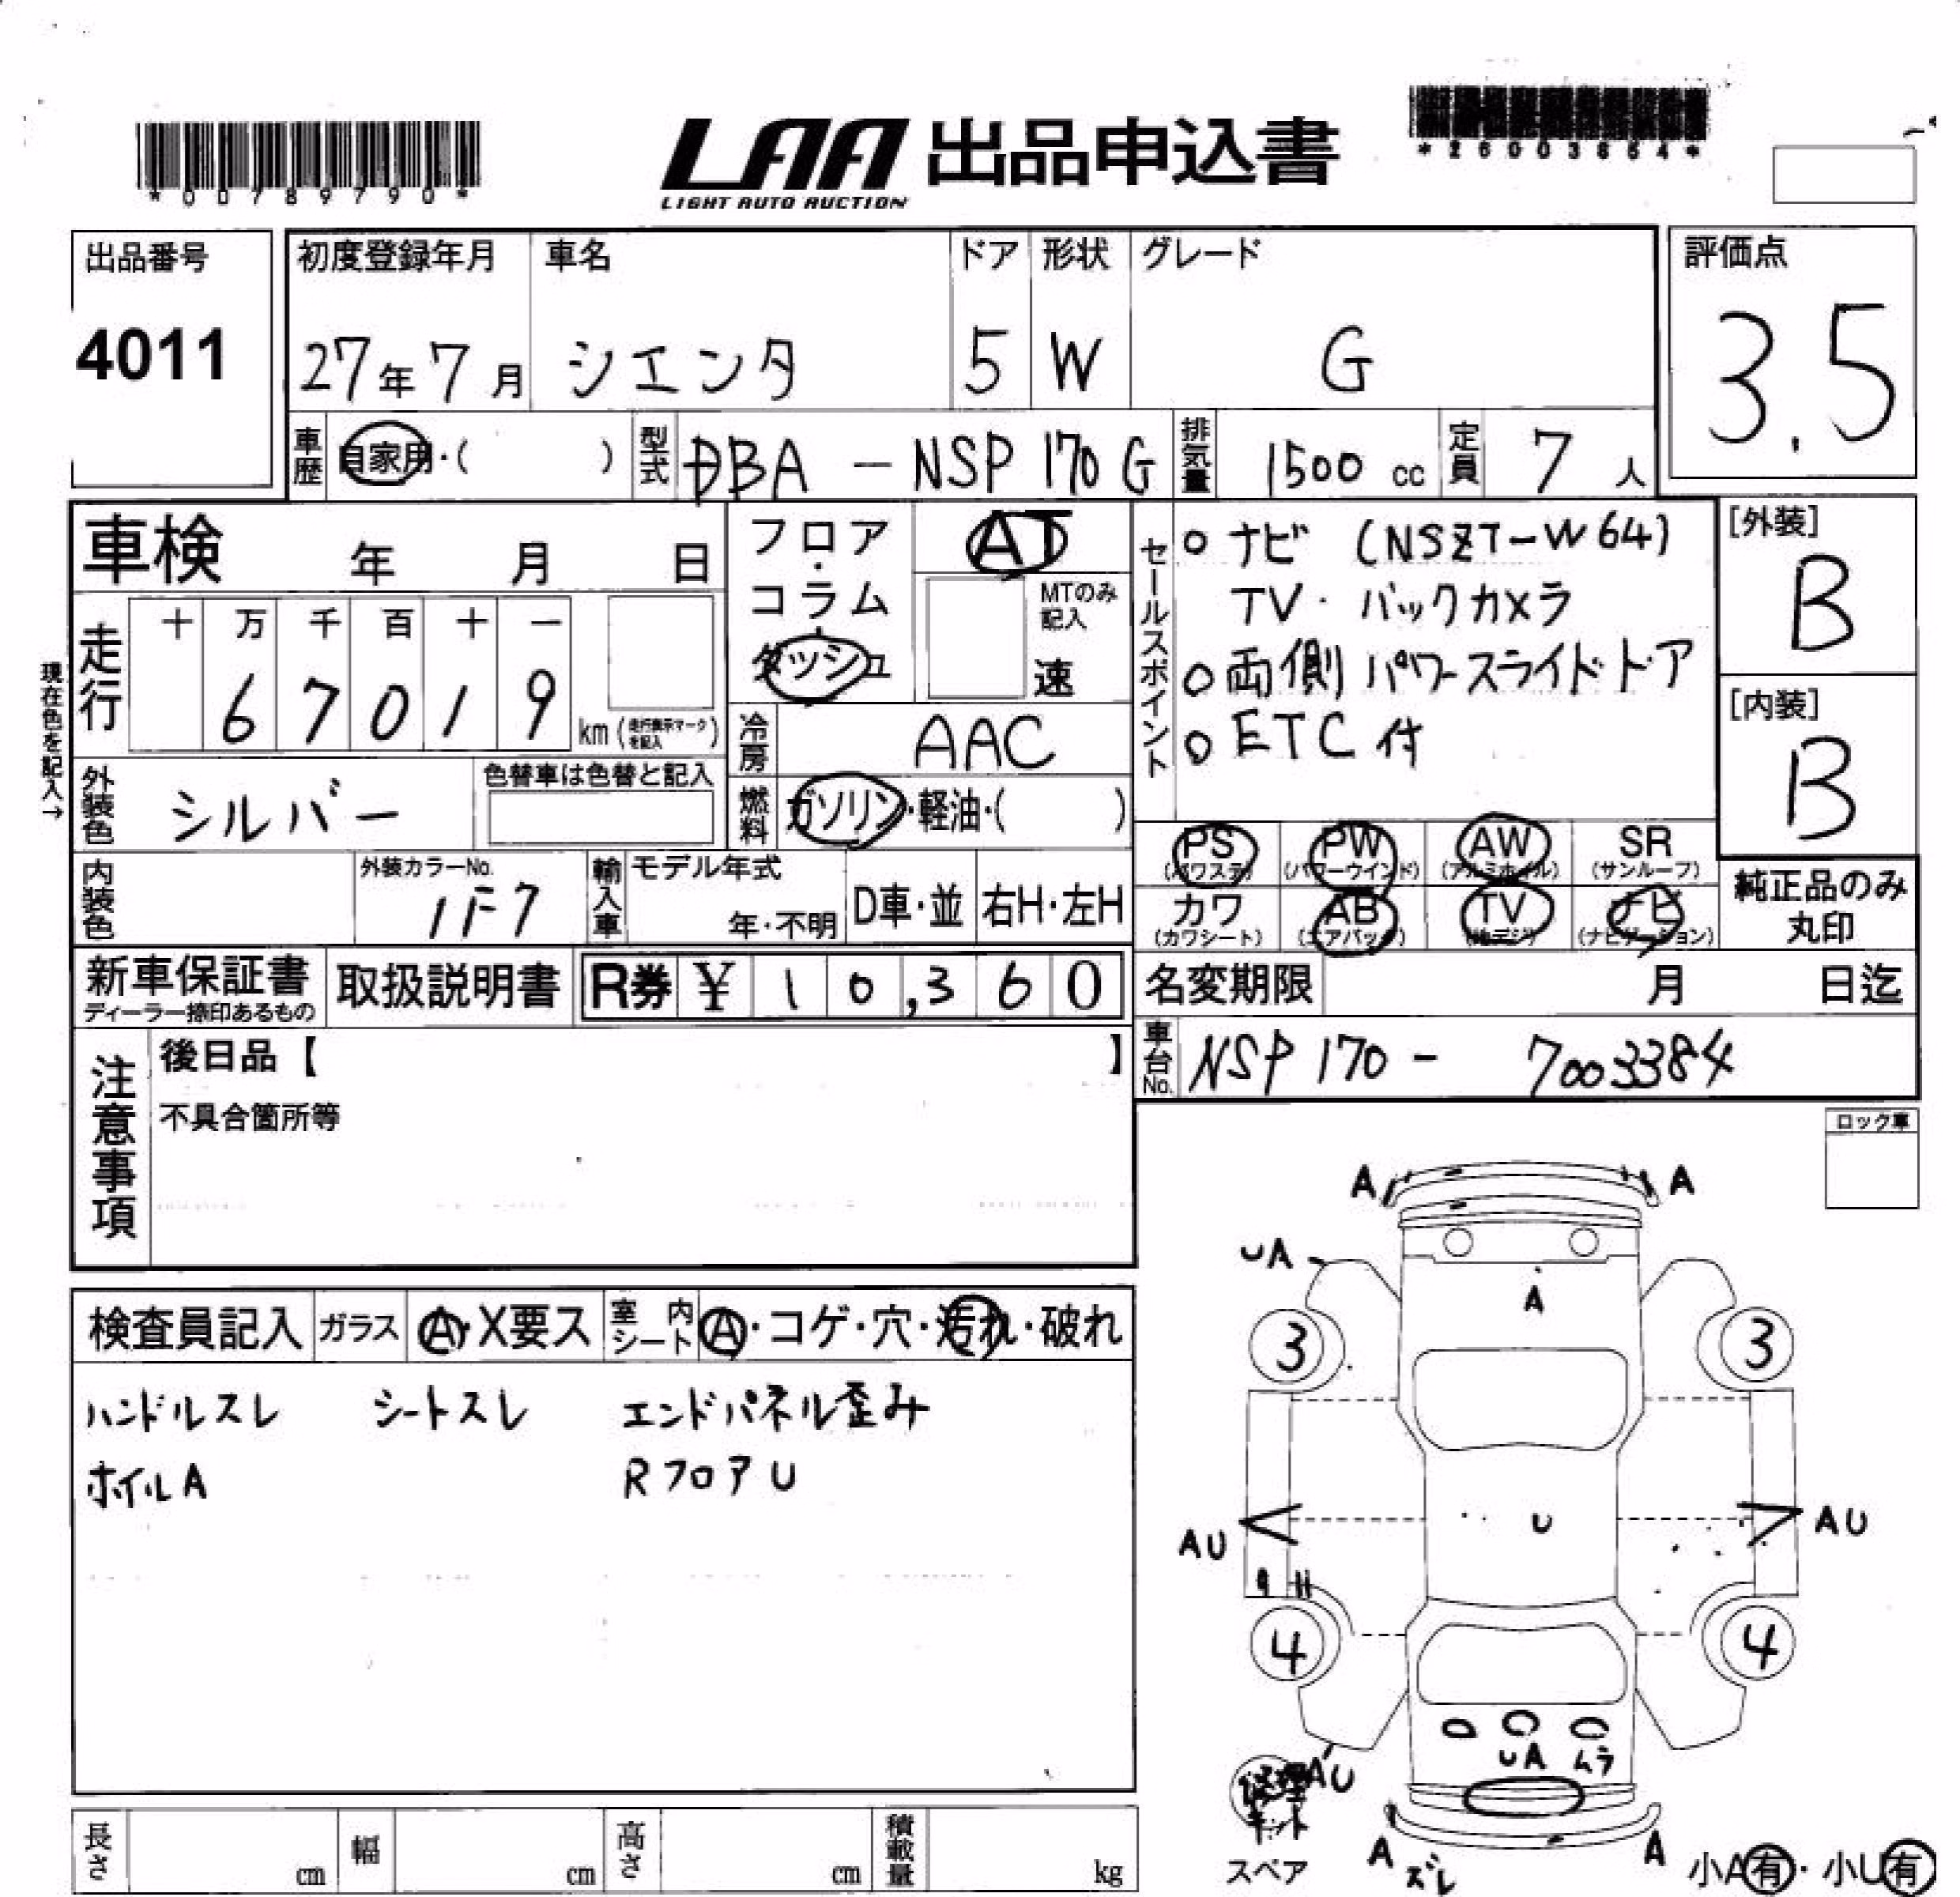 *00789790*
LAA 出品申込書
LIGHT AUTO AUCTION
*26003654*
出品番号
4011
初度登録年月 車名 ドア 形状 グレード
27年 7月 シエンタ 5 W G
評価点
3.5
車歴 自家用・( )
型式 DBA-NSP170G
排気量 1500 cc
定員 7 人
車検 年 月 日
フロア・コラム・ダッシュ
AT
MTのみ記入
速
セールスポイント
○ ナビ (NSZT-W64)
TV・バックカメラ
○ 両側パワースライドドア
○ ETC付
[外装]
B
[内装]
B
現在色を記入→
走行
十 万 千 百 十 一
6 7 0 1 9
km (走行表示マークを記入)
冷房 AAC
外装色 シルバー
色替車は色替と記入
燃料 ガソリン・軽油・( )
PS (パワステ)
PW (パワーウインド)
AW (アルミホイル)
SR (サンルーフ)
カワ (カワシート)
AB (エアバック)
TV (地デジ)
ナビ (ナビゲーション)
純正品のみ丸印
内装色
外装カラーNo.
1F7
輸入車
モデル年式
年・不明
D車・並
右H・左H
新車保証書
ディーラー捺印あるもの
取扱説明書
R券 ¥ 10,360
名変期限 月 日迄
車台No. NSP170-7003384
注意事項
後日品【 】
不具合箇所等
ロック車
検査員記入
ガラス A・X要ス
室内シート A・コゲ・穴・汚れ・破れ
ハンドルスレ シートスレ エンドパネル歪み
ホイルA RフロアU
A A
UA
A
3 3
AU U AU
4 4
UA ムラ
AU
修理キット
スペア
A ズレ A
小A有・小U有
長さ cm
幅 cm
高さ cm
積載量 kg